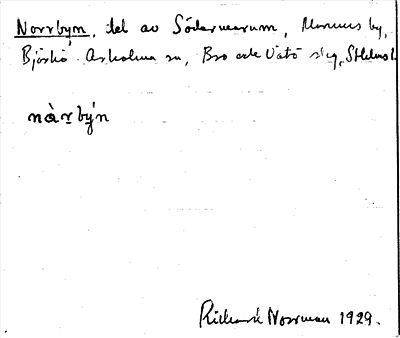 Norrbyn, del av Södermarum, Marums by,
Björkö-Arholma sn, Bro och Vätö slg, Sthlms l.
nàr̤bẏ́n
Rickard Norrman 1929.